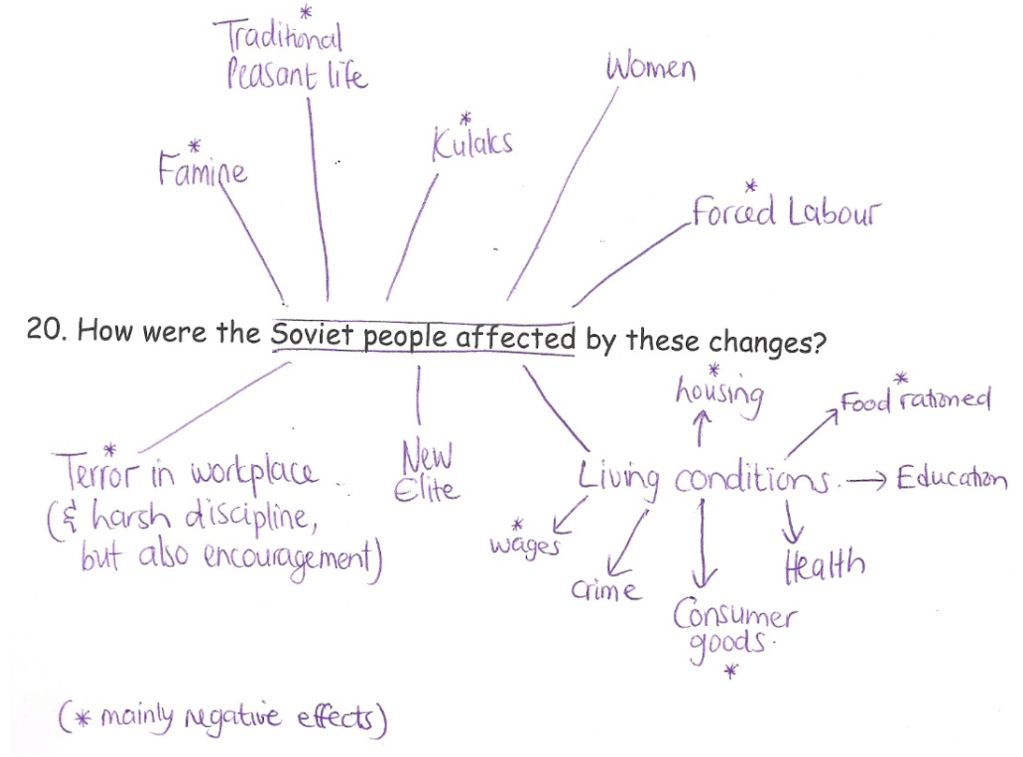 *
Traditional
Peasant life
Women
*
Kulaks
*
Famine
*
Forced Labour
20. How were the Soviet people affected by these changes?
*
housing
*
Food rationed
*
Terror in workplace
(& harsh discipline,
but also encouragement)
New
Elite
Living conditions. → Education
*
wages
Crime
Health
Consumer
goods.
*
(* mainly negative effects)